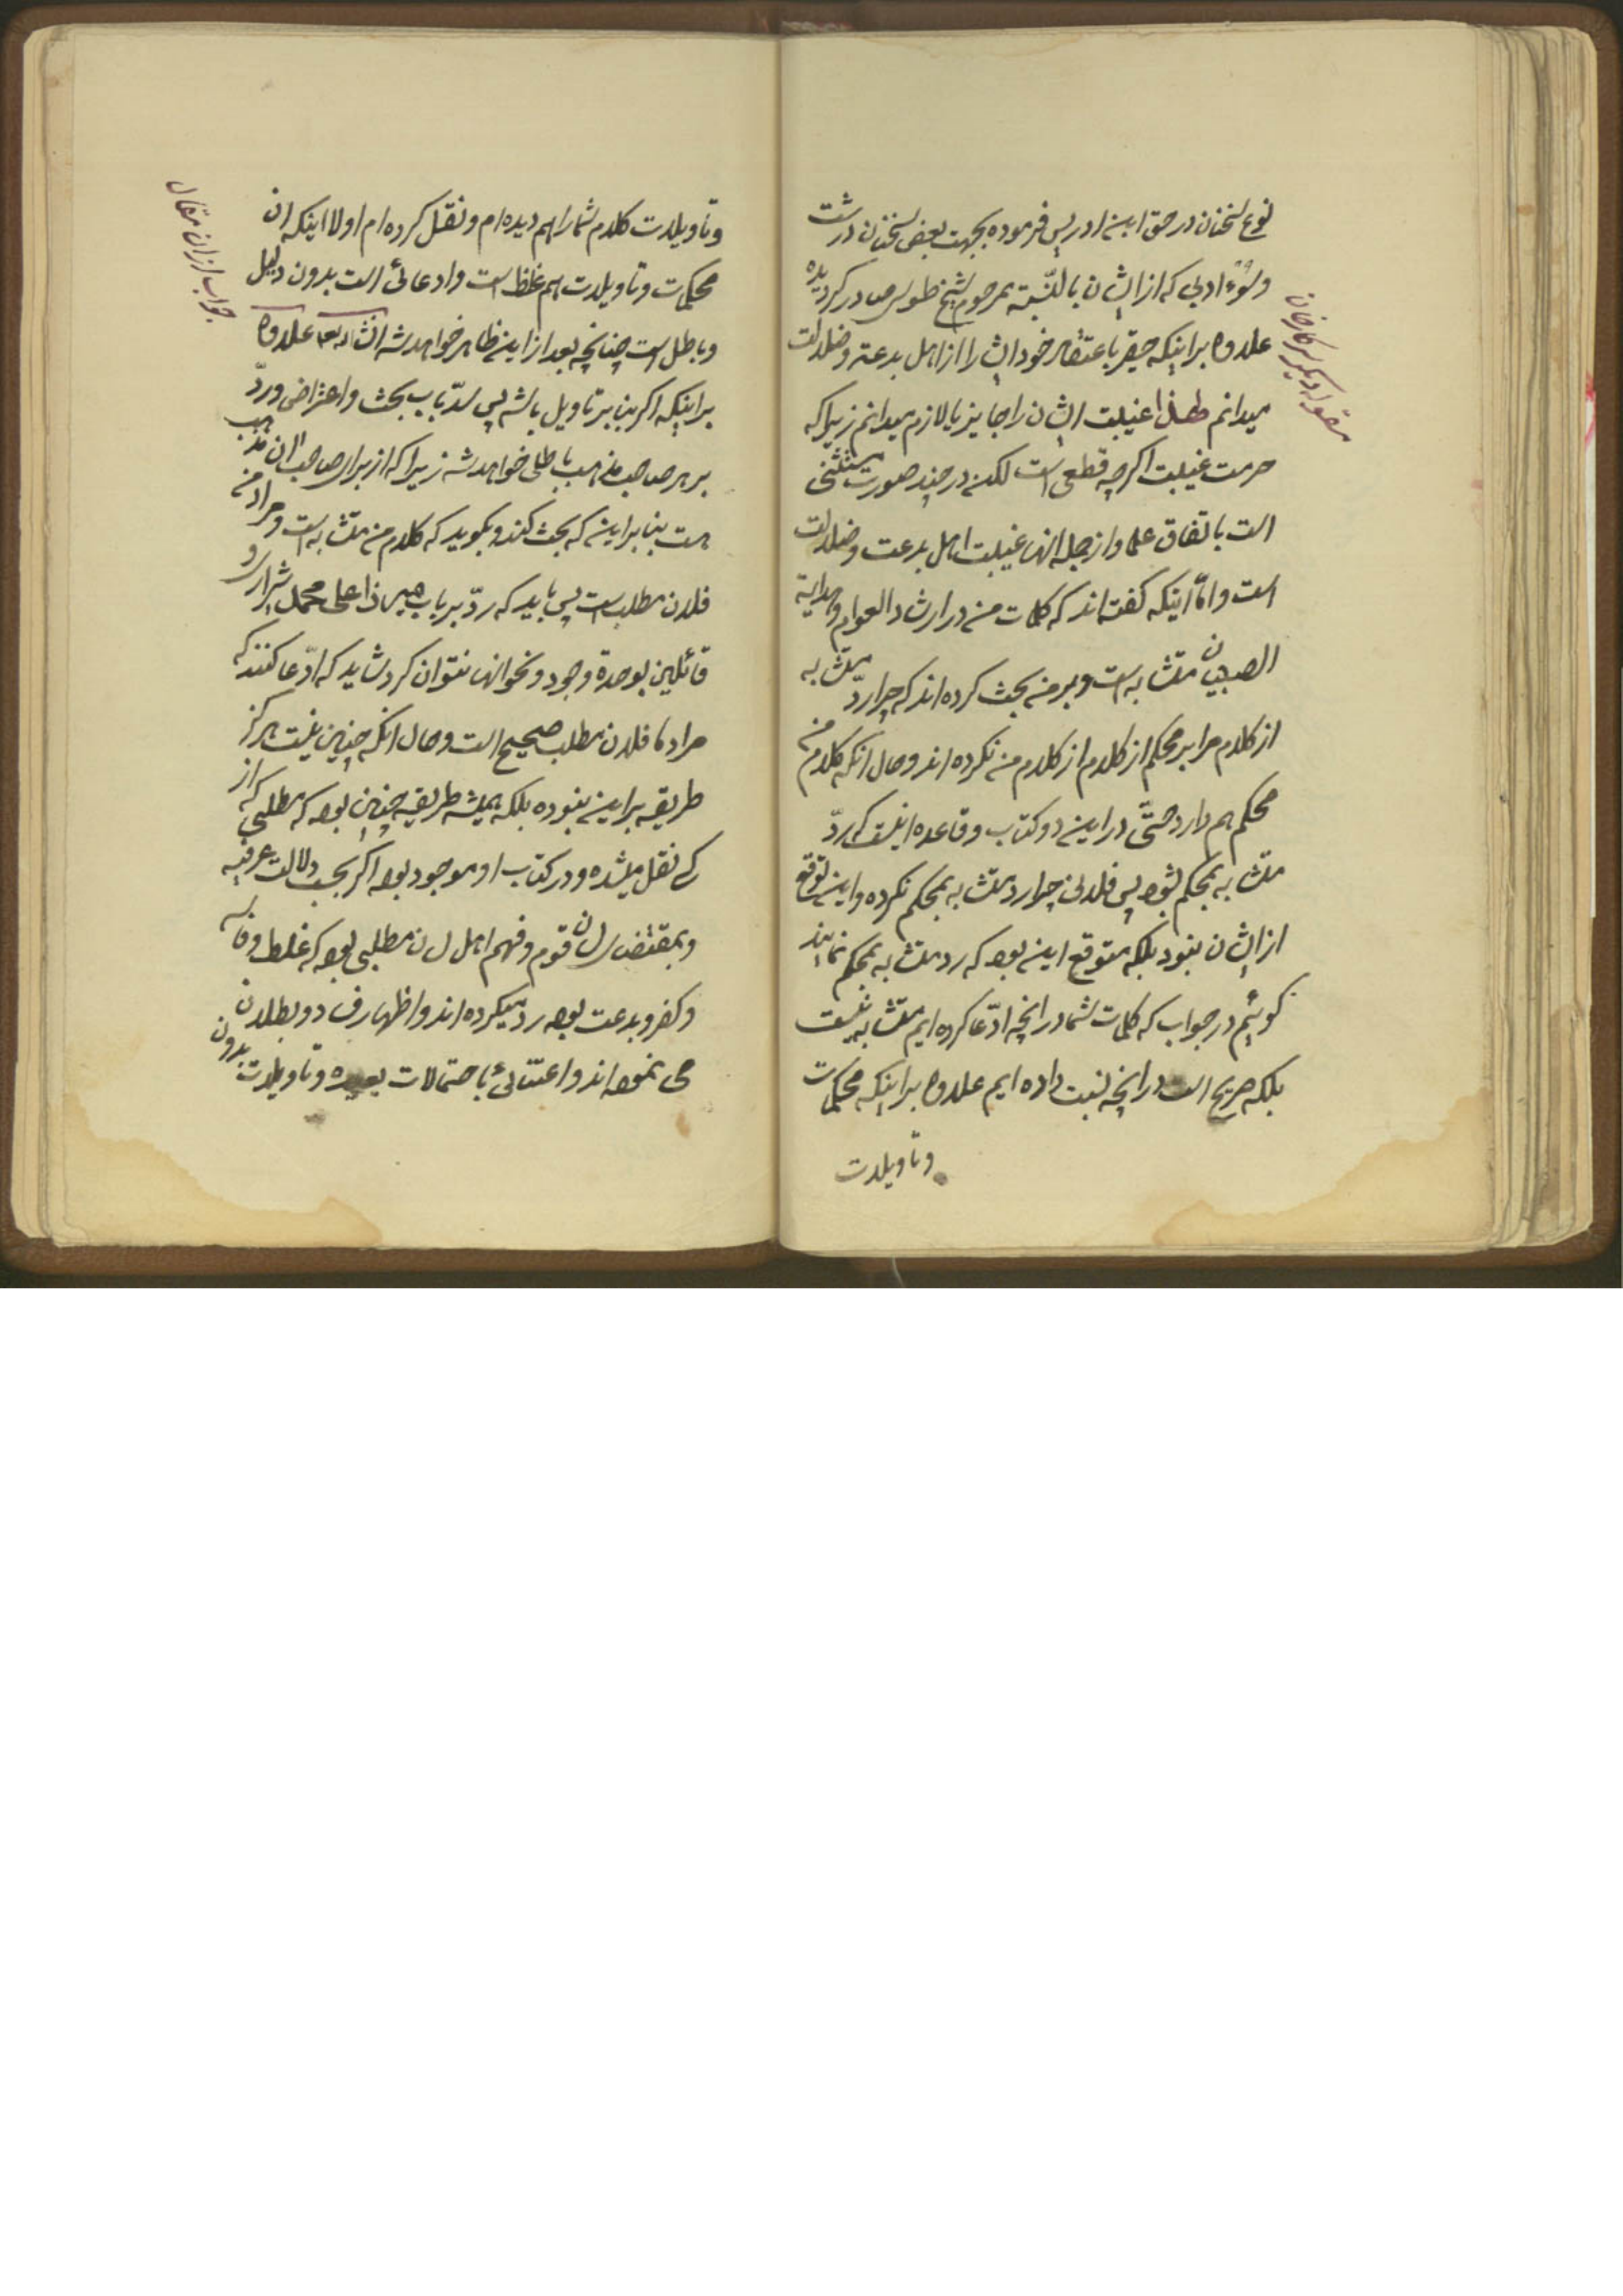 نوع سخنان در حق ابن ادریس فرموده بجهت بعض سخنان درشت
وسوء ادبی که از ایشان بالنّسبة بمرحوم شیخ طوسی صادر گردیده
علاوه بر اینکه حقیر باعتقاد خود ایشان را از اهل بدعت وضلالت
میدانم لهذا غیبت ایشان را جایز یا لازم میدانم زیرا که
حرمت غیبت اگر چه قطعی است لکن در چند صورت مستثنی
است باتفاق علما واز جمله انها غیبت اهل بدعت وضلالت
است وامّا اینکه گفته اند که کلمات من در ارشاد العوام وهدایة
الصبیان متشابه است وبر من بحث کرده اند که چرا ردّ متشابه
از کلام مرا بر محکم از کلام از کلام من نکرده اند وحال انکه کلام من
محکم هم دارد حتّی در این دو کتاب وقاعده اینست که ردّ
متشابه بمحکم شود پس فلانی چرا رد متشابه بمحکم نکرده واین توقع
از ایشان نبود بلکه متوقع این بود که رد متشابه بمحکم نمایند
گوئیم در جواب که کلمات شما در انچه ادّعا کرده ایم متشابه نیست
بلکه صریح است در انچه نسبت داده ایم علاوه بر اینکه محکمات
وتاویلات
مقوله دیگر سرکار خان
وتاویلات کلام شما را هم دیده ام ونقل کرده ام اولا اینکه ان
محکمات وتاویلات هم غلط است وادعائی است بدون دلیل
وباطل است چنانچه بعد از این ظاهر خواهد شد انشاءالله علاوه
بر اینکه اگر بنا بر تاویل باشد پس سدّ باب بحث واعتراض وردّ
بر هر صاحب مذهب باطلی خواهد شد زیرا که از برای صاحب ان مذهب
هست بنا بر این که بحث کند وبگوید که کلام من متشابه است ومراد من
فلان مطلب است پس باید که ردّ بر باب میرزا علی محمد شیرازی و
قائلین بوحدة وجود ونحو انها نتوان کرد شاید که ادّعا کنند که
مراد ما فلان مطلب صحیح است وحال انکه چنین نیست هرگز
طریقه بر این نبوده بلکه همیشه طریقه چنین بود که مطلبی که از
کسی نقل میشده ودر کتاب او موجود بود اگر بحسب دلالت عرفیه
وبمقتضای لسان قوم وفهم اهل لسان مطلبی بود که غلط وفاسد
وکفر وبدعت بود رد میکرده اند واظهار فساد وبطلان
می نمود اند واعتنائی باحتمالات بعیده وتاویلات بدون
جواب از ان مقال